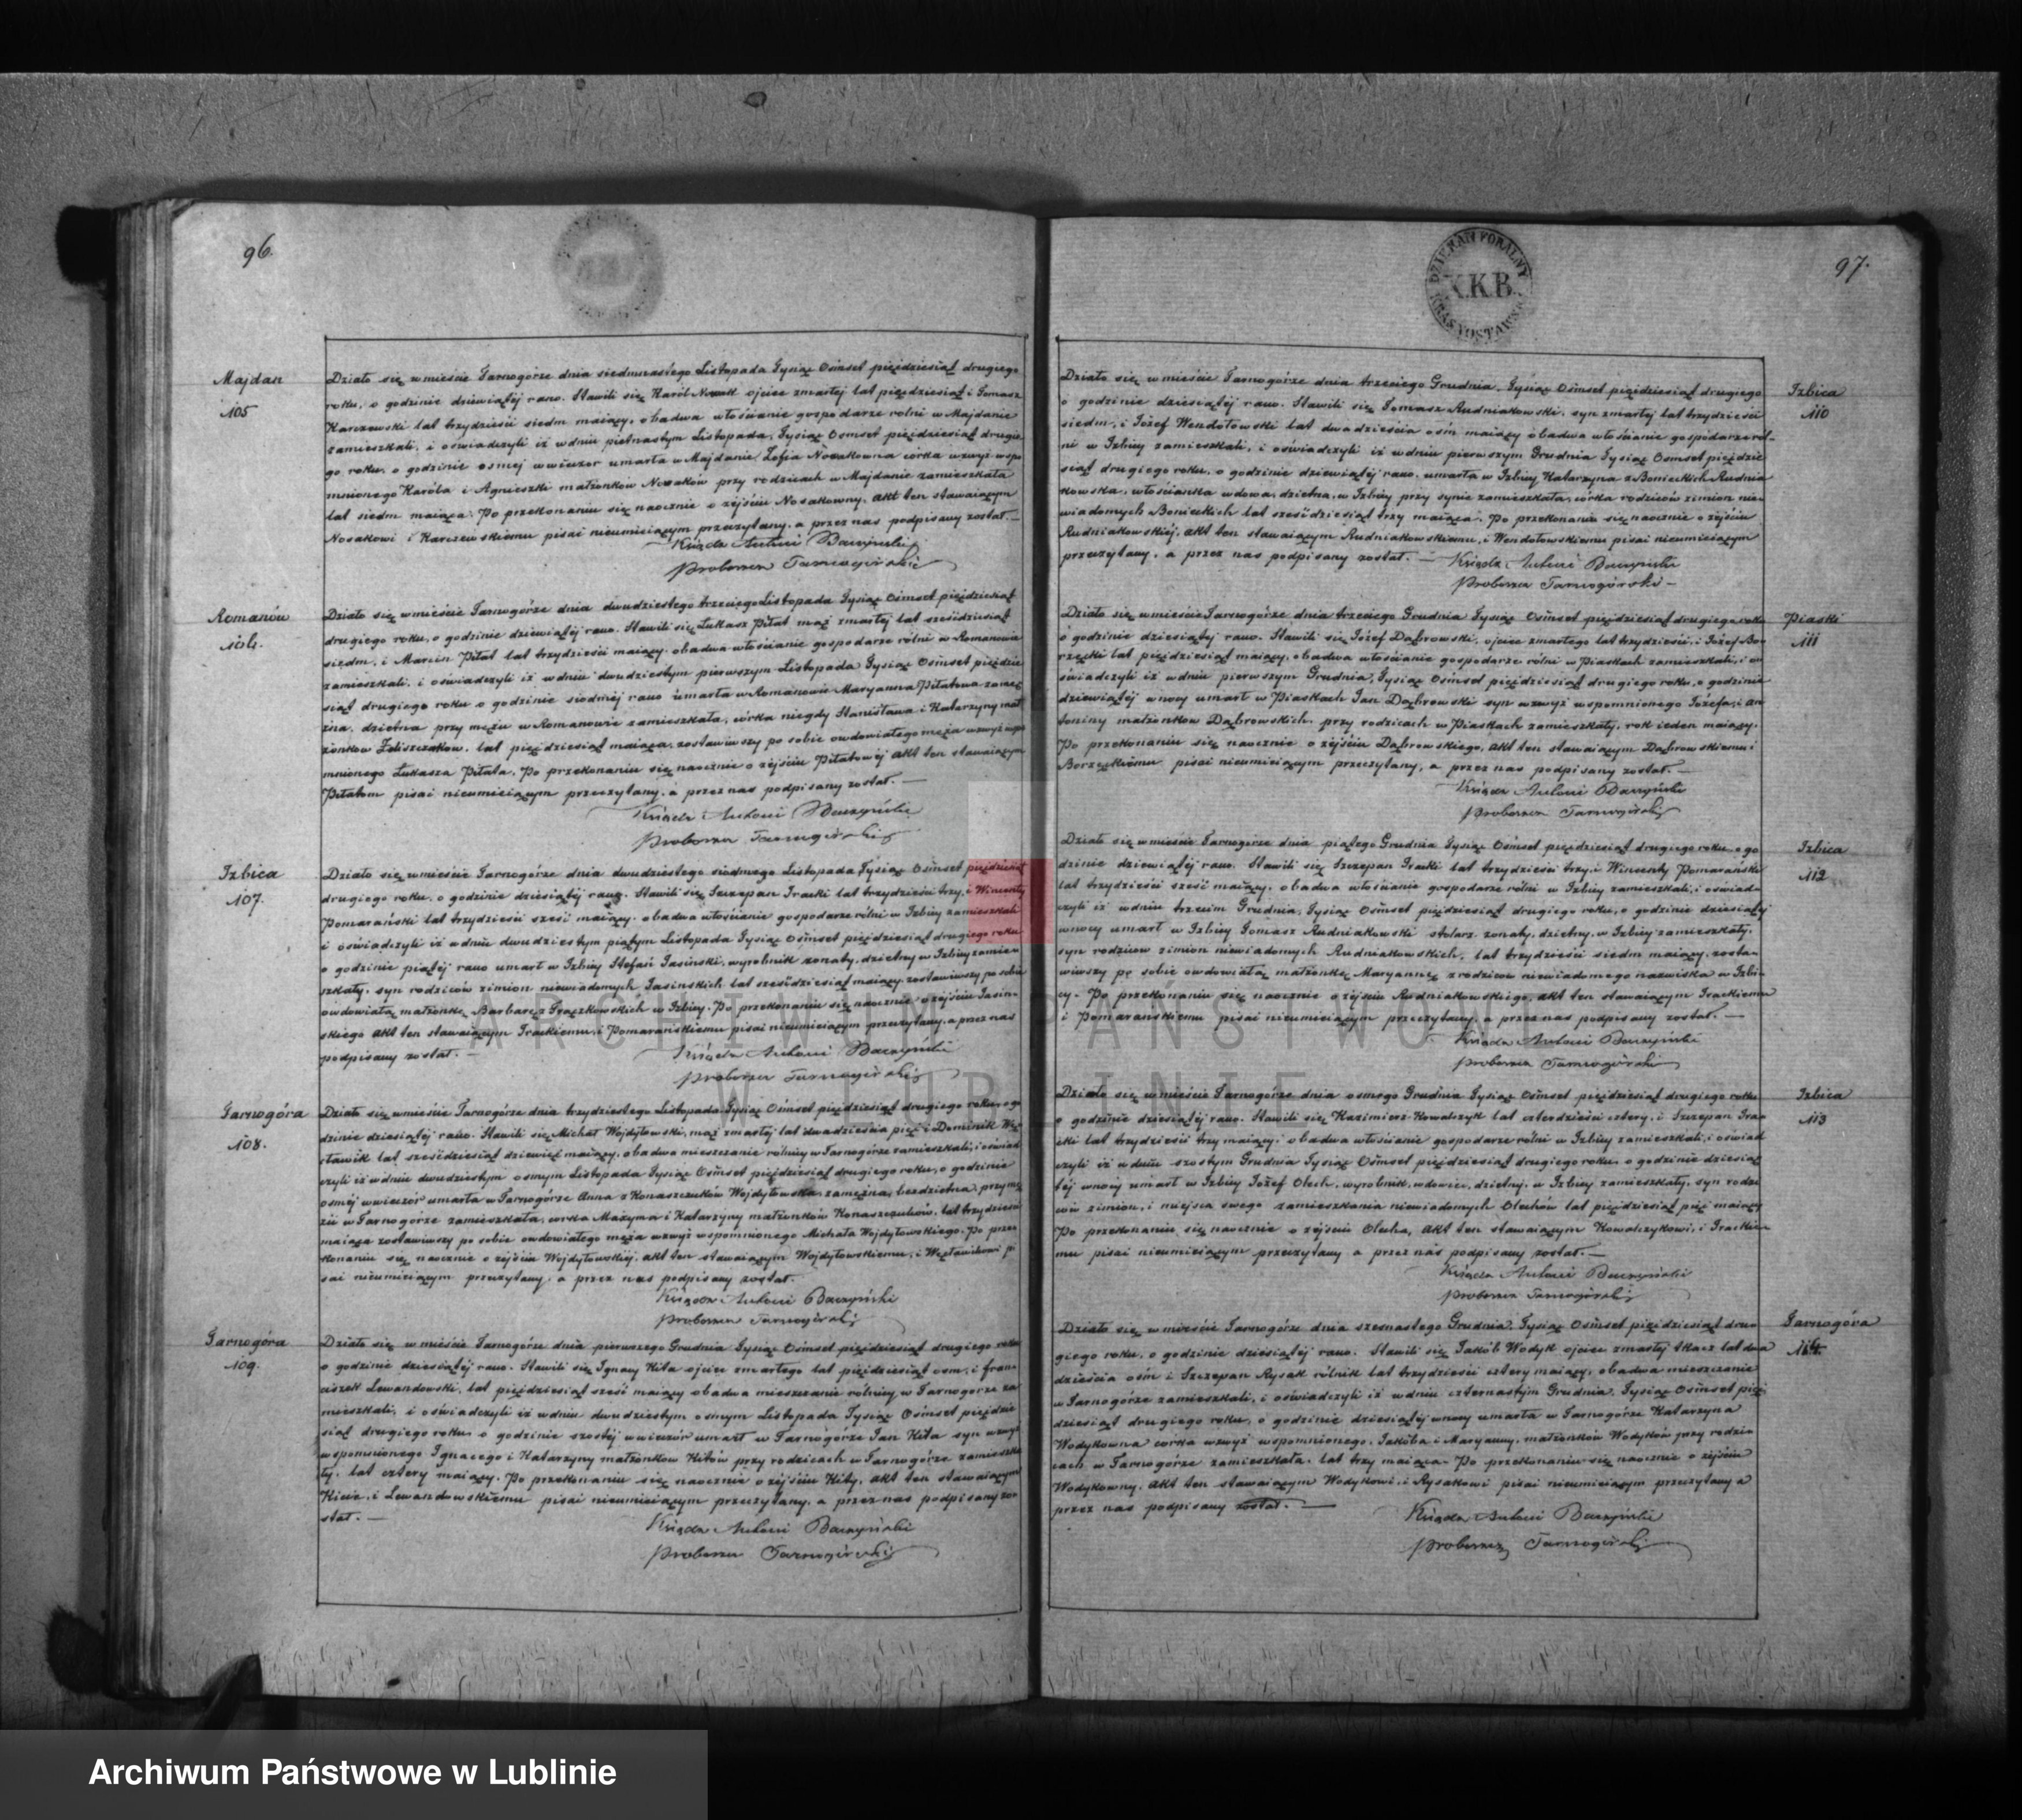 96.
Majdan
105
Działo się w mieście Tarnogórze dnia siedmnastego Listopada Tysiąc Ośmset pięćdziesiąt drugiego
roku, o godzinie dziewiątéj rano. Stawili się Karól Nowak ojciec zmarłej lat pięćdziesiąt i Tomasz
Karczewski lat trzydzieści siedm maiący, obadwa włościanie gospodarze rolni w Majdanie
zamieszkali, i oświadczyli iż w dniu piętnastym Listopada, Tysiąc Ośmset pięćdziesiąt drugie
go roku, o godzinie osmej wwieczor umarła w Majdanie Zofia Nowakowna corka wzwyż wspo
mnionego Karóla i Agnieszki małżonków Nowaków przy rodzicach w Majdanie zamieszkała
lat siedm maiąca. Po przekonaniu się naocznie o zéjściu Nosakowny, akt ten stawaiącym
Nosakowi i Karczewskiemu pisać nieumieiącym przeczytany, a przez nas podpisany został. —
Ksiądz Antoni Baczyński
Proboszcz Tarnogórski
Romanów
106.
Działo się w mieście Tarnogórze dnia dwudziestego trzeciego Listopada Tysiąc Ośmset pięćdziesiąt
drugiego roku, o godzinie dziewiątéj rano. Stawili się Łukasz Piłat mąż zmarłej lat sześćdziesiąt
siedm, i Marcin Piłat lat trzydzieści maiący, obadwa włościanie gospodarze rolni w Romanowie
zamieszkali, i oświadczyli iż w dniu dwudziestym pierwszym Listopada Tysiąc Ośmset pięćdzie
siąt drugiego roku o godzinie siódméj rano umarła w Romanowie Maryanna Piłatowa zamę
żna, dzietna przy mężu w Romanowie zamieszkała, córka niegdy Stanisława i Katarzyny mał
żonków Żeliszczaków, lat pięćdziesiąt maiąca, zostawiwszy po sobie owdowiałego męża wzwyż wspo
mnionego Łukasza Piłata. Po przekonaniu się naocznie o zéjściu Piłatowéj akt ten stawaiącym
Piłatom pisać nieumieiącym przeczytany, a przez nas podpisany został. —
Ksiądz Antoni Baczyński
Proboszcz Tarnogórski
Izbica
107.
Działo się w mieście Tarnogórze dnia dwudziestego siodmego Listopada Tysiąc Ośmset pięćdziesiąt
drugiego roku, o godzinie dziesiątéj rano. Stawili się Szczepan Iracki lat trzydzieści trzy, i Wincenty
Pomarański lat trzydzieści sześć maiący, obadwa włościanie gospodarze rólni w Izbicy zamieszkali
i oświadczyli iż w dniu dwudziestym piątym Listopada Tysiąc Ośmset pięćdziesiąt drugiego roku
o godzinie piątéj rano umarł w Izbicy Stefan Jasinski, wyrobnik żonaty, dzietny w Izbicy zamie
szkały, syn rodziców zimion niewiadomych Jasinskich lat sześćdziesiąt maiący, zostawiwszy po sobie
owdowiałą małżonkę Barbarę z Grączkowskich w Izbicy. Po przekonaniu się naocznie o zéjściu Jasin-
skiego akt ten stawaiącym Irackiemu, i Pomarańskiemu pisać nieumieiącym przeczytany, a przez nas
podpisany został. —
Ksiądz Antoni Baczyński
Proboszcz Tarnogórski
Tarnogóra
108.
Działo się w mieście Tarnogórze dnia trzydziestego Listopada Tysiąc Ośmset pięćdziesiąt drugiego roku, o go
dzinie dziesiątéj rano. Stawili się Michał Wojdytowski, mąż zmarłej lat dwadzieścia pięć i Dominik Wę
cławik lat sześćdziesiąt dziewięć maiący, obadwa mieszczanie rólnicy w Tarnogórze zamieszkali, i oświad
czyli iż w dniu dwudziestym osmym Listopada Tysiąc Ośmset pięćdziesiąt drugiego roku, o godzinie
osméj wwieczór umarła w Tarnogórze Anna z Konaszczuków Wojdytowska, zamężna, bezdzietna, przy mę
żu w Tarnogórze zamieszkała, corka Maxyma i Katarzyny małżonków Konaszczuków, lat trzydzieści
maiąca zostawiwszy po sobie owdowiałego męża wzwyż wspomnionego Michała Wojdytowskiego. Po prze
konaniu się naocznie o zéjściu Wojdytowskiéj, akt ten stawaiącym Wojdytowskiemu, i Węcławikowi pi
sać nieumieiącym przeczytany, a przez nas podpisany został.
Ksiądz Antoni Baczyński
Proboszcz Tarnogórski
Tarnogóra
109.
Działo się w mieście Tarnogórze dnia pierwszego Grudnia Tysiąc Ośmset pięćdziesiąt drugiego roku
o godzinie dziesiątéj rano. Stawili się Ignacy Kita ojciec zmarłego lat pięćdziesiąt osm, i Fran-
ciszek Lewandowski, lat pięćdziesiąt sześć maiący obadwa mieszczanie rólnicy w Tarnogórze za
mieszkali, i oświadczyli iż w dniu dwudziestym osmym Listopada Tysiąc Ośmset pięćdzie
siąt drugiego roku, o godzinie szóstéj wwieczór umarł w Tarnogórze Jan Kita syn wzwyż
wspomnionego Ignacego i Katarzyny małżonków Kitów przy rodzicach w Tarnogórze zamieszka
ły, lat cztery maiący. Po przekonaniu się naocznie o zéjściu Kity, akt ten stawaiącym
Kicie, i Lewandowskiemu pisać nieumieiącym przeczytany, a przez nas podpisany zo-
stał. —
Ksiądz Antoni Baczyński
Proboszcz Tarnogórski
DZIEKAN FORALNY
X.K.B.
KRASNOSTAWSKI
97.
Izbica
110
Działo się w mieście Tarnogórze dnia trzeciego Grudnia Tysiąc Ośmset pięćdziesiąt drugiego
o godzinie dziesiątéj rano. Stawili się Tomasz Rudniakowski, syn zmarłej lat trzydzieści
siedm, i Józef Wendołowski lat dwadzieścia ośm maiący obadwa włościanie gospodarze ról-
ni w Izbicy zamieszkali, i oświadczyli iż w dniu pierwszym Grudnia Tysiąc Ośmset pięćdzie
siąt drugiego roku, o godzinie dziewiątéj rano, umarła w Izbicy Katarzyna z Bonieckich Rudnia
kowska, włościanka wdowa, dzietna, w Izbicy przy synie zamieszkała, córka rodziców zimion nie-
wiadomych Bonieckich lat sześćdziesiąt trzy maiąca. Po przekonaniu się naocznie o zéjściu
Rudniakowskiéj, akt ten stawaiącym Rudniakowskiemu, i Wendołowskiemu pisać nieumieiącym
przeczytany, a przez nas podpisany został. —
Ksiądz Antoni Baczyński
Proboszcz Tarnogórski
Piaski
111
Działo się w mieście Tarnogórze dnia trzeciego Grudnia Tysiąc Ośmset pięćdziesiąt drugiego roku
o godzinie dziesiątéj rano. Stawili się Józef Dąbrowski, ojciec zmarłego lat trzydzieści, i Józef Bo-
rzęcki lat pięćdziesiąt maiący, obadwa włościanie gospodarze rólni w Piaskach zamieszkali, i o
świadczyli iż w dniu pierwszym Grudnia, Tysiąc Ośmset pięćdziesiąt drugiego roku, o godzinie
dziewiątéj w nocy umarł w Piaskach Jan Dąbrowski syn wzwyż wspomnionego Józefa, i An
toniny małżonków Dąbrowskich, przy rodzicach w Piaskach zamieszkały, rok ieden maiący.
Po przekonaniu się naocznie o zéjściu Dąbrowskiego, akt ten stawaiącym Dąbrowskiemu i
Borzęckiemu pisać nieumieiącym przeczytany, a przez nas podpisany został. —
Ksiądz Antoni Baczyński
Proboszcz Tarnogórski
Izbica
112
Działo się w mieście Tarnogórze dnia piątego Grudnia Tysiąc Ośmset pięćdziesiąt drugiego roku, o go
dzinie dziewiątéj rano. Stawili się Szczepan Iracki lat trzydzieści trzy, i Wincenty Pomarański
lat trzydzieści sześć maiący, obadwa włościanie gospodarze rólni w Izbicy zamieszkali, i oświad-
czyli iż w dniu trzecim Grudnia, Tysiąc Ośmset pięćdziesiąt drugiego roku, o godzinie dziesiątéj
w nocy umarł w Izbicy Tomasz Rudniakowski stolarz żonaty, dzietny, w Izbicy zamieszkały,
syn rodziców zimion niewiadomych Rudniakowskich, lat trzydzieści siedm maiący, zosta-
wiwszy po sobie owdowiałą małżonkę Maryannę z rodziców niewiadomego nazwiska w Izbi-
cy. Po przekonaniu się naocznie o zéjściu Rudniakowskiego, akt ten stawaiącym Irackiemu
i Pomarańskiemu pisać nieumieiącym przeczytany, a przez nas podpisany został. —
Ksiądz Antoni Baczyński
Proboszcz Tarnogórski
Izbica
113
Działo się w mieście Tarnogórze dnia osmego Grudnia Tysiąc Ośmset pięćdziesiąt drugiego roku
o godzinie dziesiątéj rano. Stawili się Kazimierz Kowalczyk lat czterdzieści cztery, i Szczepan Ira-
cki lat trzydzieści trzy maiący, obadwa włościanie gospodarze rólni w Izbicy zamieszkali, i oświad
czyli iż w dniu szostym Grudnia Tysiąc Ośmset pięćdziesiąt drugiego roku, o godzinie dziesią
téj w nocy umarł w Izbicy Józef Olech, wyrobnik, wdowiec, dzietny, w Izbicy zamieszkały, syn rodzi
ców zimion, i miejsca swego zamieszkania niewiadomych Olechów lat pięćdziesiąt pięć maiący
Po przekonaniu się naocznie o zéjściu Olecha, akt ten stawaiącym Kowalczykowi, i Irackie-
mu pisać nieumieiącym przeczytany a przez nas podpisany został. —
Ksiądz Antoni Baczyński
Proboszcz Tarnogórski
Tarnogóra
114.
Działo się w mieście Tarnogórze dnia szesnastego Grudnia, Tysiąc Ośmset pięćdziesiąt dru-
giego roku, o godzinie dziesiątéj rano. Stawili się Jakób Wodyk ojciec zmarłej tkacz lat dwa
dzieścia ośm i Szczepan Rysak rólnik lat trzydzieści cztery maiący, obadwa mieszczanie
w Tarnogórze zamieszkali, i oświadczyli iż w dniu czternastym Grudnia, Tysiąc Ośmset pięć
dziesiąt drugiego roku, o godzinie dziesiątéj w nocy umarła w Tarnogórze Katarzyna
Wodykowna corka wzwyż wspomnionego, Jakóba i Maryanny, małżonków Wodyków przy rodzi
cach w Tarnogórze zamieszkała, lat trzy maiąca. Po przekonaniu się naocznie o zéjściu
Wodykowny, akt ten stawaiącym Wodykowi, i Rysakowi pisać nieumieiącym przeczytany a
przez nas podpisany został. —
Ksiądz Antoni Baczyński
Proboszcz Tarnogórski
ARCHIWUM PAŃSTWOWE
W LUBLINIE
Archiwum Państwowe w Lublinie